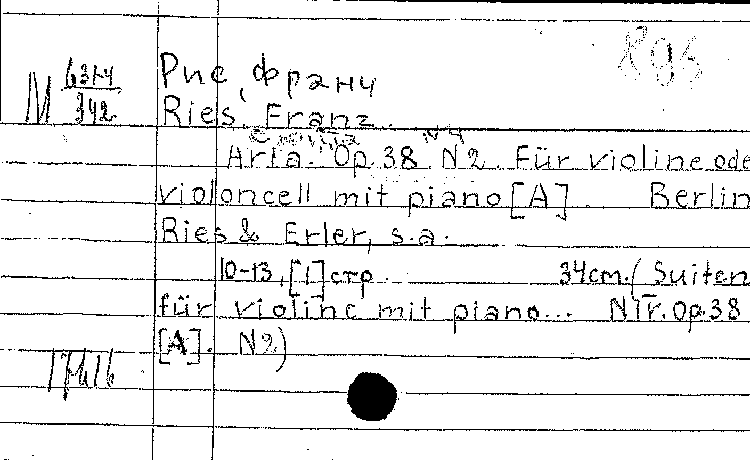 Рис, Франц
М 6314/342
Ries, Franz.
Aria. Op. 38 N2. Für violine ode
violoncell mit piano [A]. Berlin
Ries & Erler, s.a.
10-13, [1] стр. 34cm. (Suiten
für violine mit piano... N IV. Op. 38
[A]. N2)